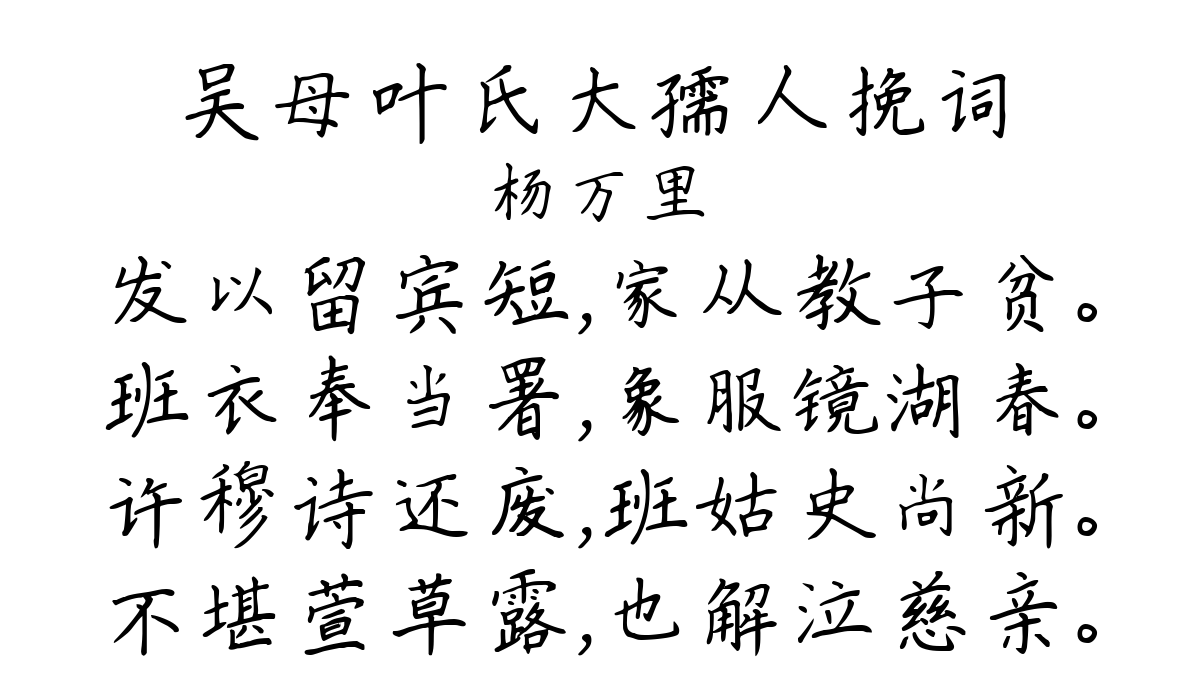 吴母叶氏大孺人挽词
杨万里
发以留宾短,家从教子贫。
班衣奉当署,象服镜湖春。
许穆诗还废,班姑史尚新。
不堪萱草露,也解泣慈亲。